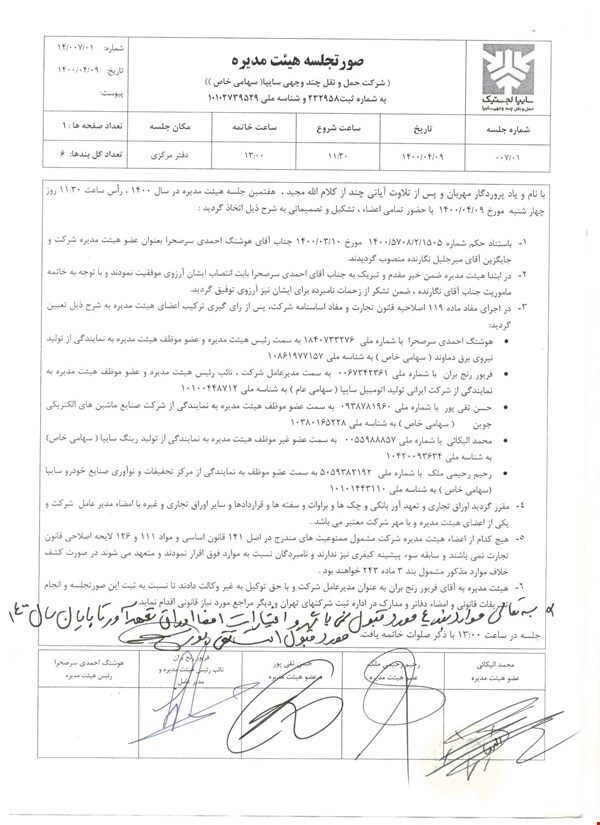 صورتجلسه هیئت مدیره
( شرکت حمل و نقل چند وجهی سایپا( سهامی خاص ))
به شماره ثبت۲۳۲۹۵۸ و شناسه ملی ۱۰۱۰۲۷۳۹۵۲۹
شماره: ۱۴/۰۰۷/۰۱
تاریخ: ۱۴۰۰/۰۴/۰۹
پیوست:
سایپا لجستیک
حمل و نقل چند وجهی سایپا
شماره جلسه تاریخ ساعت شروع ساعت خاتمه مکان جلسه تعداد صفحه ها : ۱
۰۰۷/۰۱ ۱۴۰۰/۰۴/۰۹ ۱۱:۳۰ ۱۳:۰۰ دفتر مرکزی تعداد کل بندها: ۶
با نام و یاد پروردگار مهربان و پس از تلاوت آیاتی چند از کلام الله مجید . هفتمین جلسه هیئت مدیره در سال ۱۴۰۰ ، رأس ساعت ۱۱:۳۰ روز
چهار شنبه مورخ ۱۴۰۰/۰۴/۰۹ با حضور تمامی اعضاء ، تشکیل و تصمیماتی به شرح ذیل اتخاذ گردید :
۱- باستناد حکم شماره ۱۴۰۰/۵۷۰۸/۲/۱۵۰۵ مورخ ۱۴۰۰/۰۳/۱۰ جناب آقای هوشنگ احمدی سرصحرا بعنوان عضو هیئت مدیره شرکت و
جایگزین آقای میرجلیل نگارنده منصوب گردیدند.
۲- در ابتدا هیئت مدیره ضمن خیر مقدم و تبریک به جناب آقای احمدی سرصحرا بابت انتصاب ایشان آرزوی موفقیت نمودند و با توجه به خاتمه
ماموریت جناب آقای نگارنده ، ضمن تشکر از زحمات نامبرده برای ایشان نیز آرزوی توفیق گردید.
۳- در اجرای مفاد ماده ۱۱۹ اصلاحیه قانون تجارت و مفاد اساسنامه شرکت، پس از رای گیری ترکیب اعضای هیئت مدیره به شرح ذیل تعیین
گردید:
• هوشنگ احمدی سرصحرا با شماره ملی ۱۸۴۰۷۳۳۲۷۶ به سمت رئیس هیئت مدیره و عضو موظف هیئت مدیره به نمایندگی از تولید
نیروی برق دماوند ( سهامی خاص ) به شناسه ملی ۱۰۸۶۱۹۷۷۱۵۷
• فریور رنج بران با شماره ملی ۰۰۶۷۳۴۲۳۶۱ به سمت مدیرعامل شرکت ، نائب رئیس هیئت مدیره و عضو موظف هیئت مدیره به
نمایندگی از شرکت ایرانی تولید اتومبیل سایپا ( سهامی عام ) به شناسه ملی ۱۰۱۰۰۴۴۸۷۱۲
• حسن تقی پور با شماره ملی ۰۹۳۸۷۸۱۹۶۰ به سمت عضو موظف هیئت مدیره به نمایندگی از شرکت صنایع ماشین های الکتریکی
جوین ( سهامی خاص ) به شناسه ملی ۱۰۳۸۰۱۶۵۲۲۸
• محمد الیکائی با شماره ملی ۰۰۵۵۹۸۸۸۵۷ به سمت عضو غیر موظف هیئت مدیره به نمایندگی از تولید رینگ سایپا ( سهامی خاص)
به شناسه ملی ۱۰۴۲۰۰۹۳۶۳۴
• رحیم رحیمی ملک با شماره ملی ۵۰۵۹۳۸۲۱۹۲ به سمت عضو موظف به نمایندگی از مرکز تحقیقات و نوآوری صنایع خودرو سایپا
(سهامی خاص ) به شناسه ملی ۱۰۱۰۱۴۴۳۱۱۰
۴- مقرر گردید اوراق تجاری و تعهد آور بانکی و چک ها و براوات و سفته ها و قراردادها و سایر اوراق تجاری و غیره با امضاء مدیر عامل شرکت و
یکی از اعضای هیئت مدیره و با مهر شرکت معتبر می باشد .
۵- هیچ کدام از اعضاء هیئت مدیره شرکت مشمول ممنوعیت های مندرج در اصل ۱۴۱ قانون اساسی و مواد ۱۱۱ و ۱۲۶ لایحه اصلاحی قانون
تجارت نمی باشند و سابقه سوء پیشینه کیفری نیز ندارند و نامبردگان نسبت به موارد فوق اقرار نمودند و متعهد می شوند در صورت کشف
خلاف موارد مذکور مشمول بند ۳ ماده ۲۴۳ خواهند بود .
۶- هیئت مدیره به آقای فریور رنج بران به عنوان مدیرعامل شرکت و با حق توکیل به غیر وکالت دادند تا نسبت به ثبت این صورتجلسه و انجام
تشریفات قانونی و امضاء دفاتر و مدارک در اداره ثبت شرکتهای تهران و دیگر مراجع مورد نیاز قانونی اقدام نماید.
موارد بند ۴ مورد قبول نمی باشد و اختیارات امضا اوراق تعهدآور تا پایان سال ۱۴۰۰
جلسه در ساعت ۱۳:۰۰ با ذکر صلوات خاتمه یافت. مورد قبول است تقی پور
محمد الیکائی
عضو هیئت مدیره
رحیم رحیمی ملک
عضو هیئت مدیره
حسن تقی پور
عضو هیئت مدیره
فریور رنج بران
نائب رئیس هیئت مدیره و
مدیر عامل
هوشنگ احمدی سرصحرا
رئیس هیئت مدیره